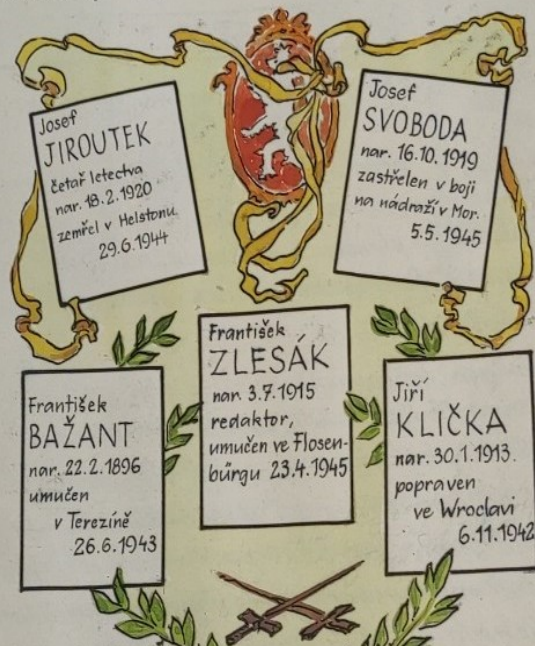 Josef
JIROUTEK
četař letectva
nar. 18.2.1920
zemřel v Helstonu
29.6.1944
Josef
SVOBODA
nar. 16.10.1919
zastřelen v boji
na nádraží v Mor.
5.5.1945
František
BAŽANT
nar. 22.2.1896
umučen
v Terezíně
26.6.1943
František
ZLESÁK
nar. 3.7.1915
redaktor,
umučen ve Flosen-
bürgu 23.4.1945
Jiří
KLIČKA
nar. 30.1.1913.
popraven
ve Wroclavi
6.11.1942